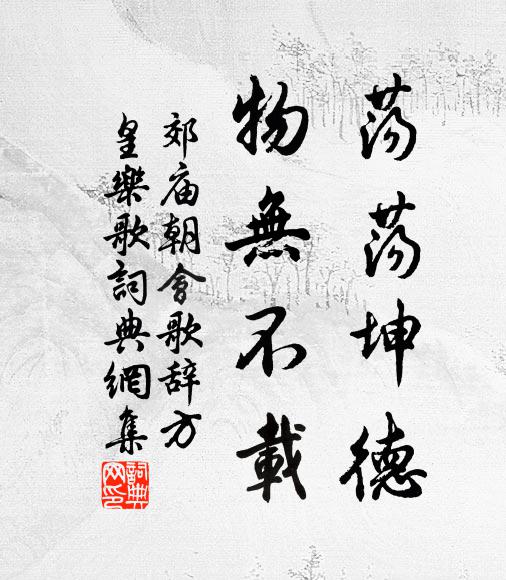 蕩蕩坤德
物無不載
郊庙朝會歌辞方
皇樂歌詞典網集
詞典网印